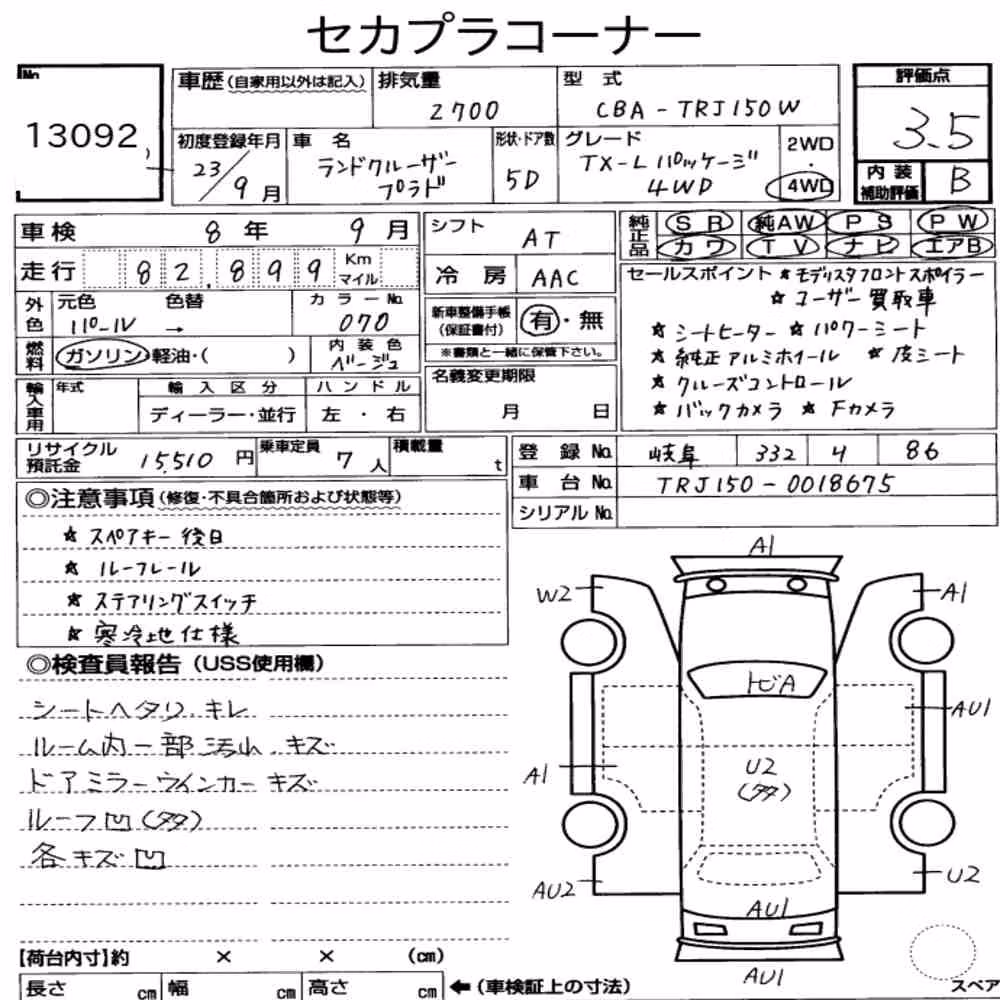 セカプラコーナー
No.
13092
車歴(自家用以外は記入)
排気量
2700
型式
CBA-TRJ150W
評価点
3.5
初度登録年月
23/9月
車名
ランドクルーザー
プラド
形状・ドア数
5D
グレード
TX-L パッケージ
4WD
2WD
・
4WD
内装
補助評価
B
車検
8年 9月
シフト
AT
純正品
SR 純AW PS PW
カワ TV ナビ エアB
走行
82,899
Km
マイル
冷房
AAC
セールスポイント ☆モデリスタフロントスポイラー
☆ユーザー買取車
☆シートヒーター ☆パワーシート
☆純正アルミホイール ☆皮シート
☆クルーズコントロール
☆バックカメラ ☆Fカメラ
外色
元色
パール
色替
→
カラーNo.
070
新車整備手帳
(保証書付)
有・無
※書類と一緒に保管下さい。
燃料
ガソリン・軽油・( )
内装色
ベージュ
名義変更期限
月 日
輸入車用
年式
輸入区分
ディーラー・並行
ハンドル
左・右
リサイクル
預託金
15,510円
乗車定員
7人
積載量
t
登録No.
岐阜 332 4 86
車台No.
TRJ150-0018675
シリアルNo.
◎注意事項(修復・不具合箇所および状態等)
☆スペアキー後日
☆ルーフレール
☆ステアリングスイッチ
☆寒冷地仕様
◎検査員報告(USS使用欄)
シートヘタリ、キレ
ルーム内一部汚れ、キズ
ドアミラーウインカーキズ
ルーフ凹(タタ)
各キズ凹
A1
W2
A1
トビA
AU1
A1
U2
(タタ)
AU2
U2
AU1
AU1
スペア
【荷台内寸】約 × × (cm)
長さ cm 幅 cm 高さ cm
←(車検証上の寸法)